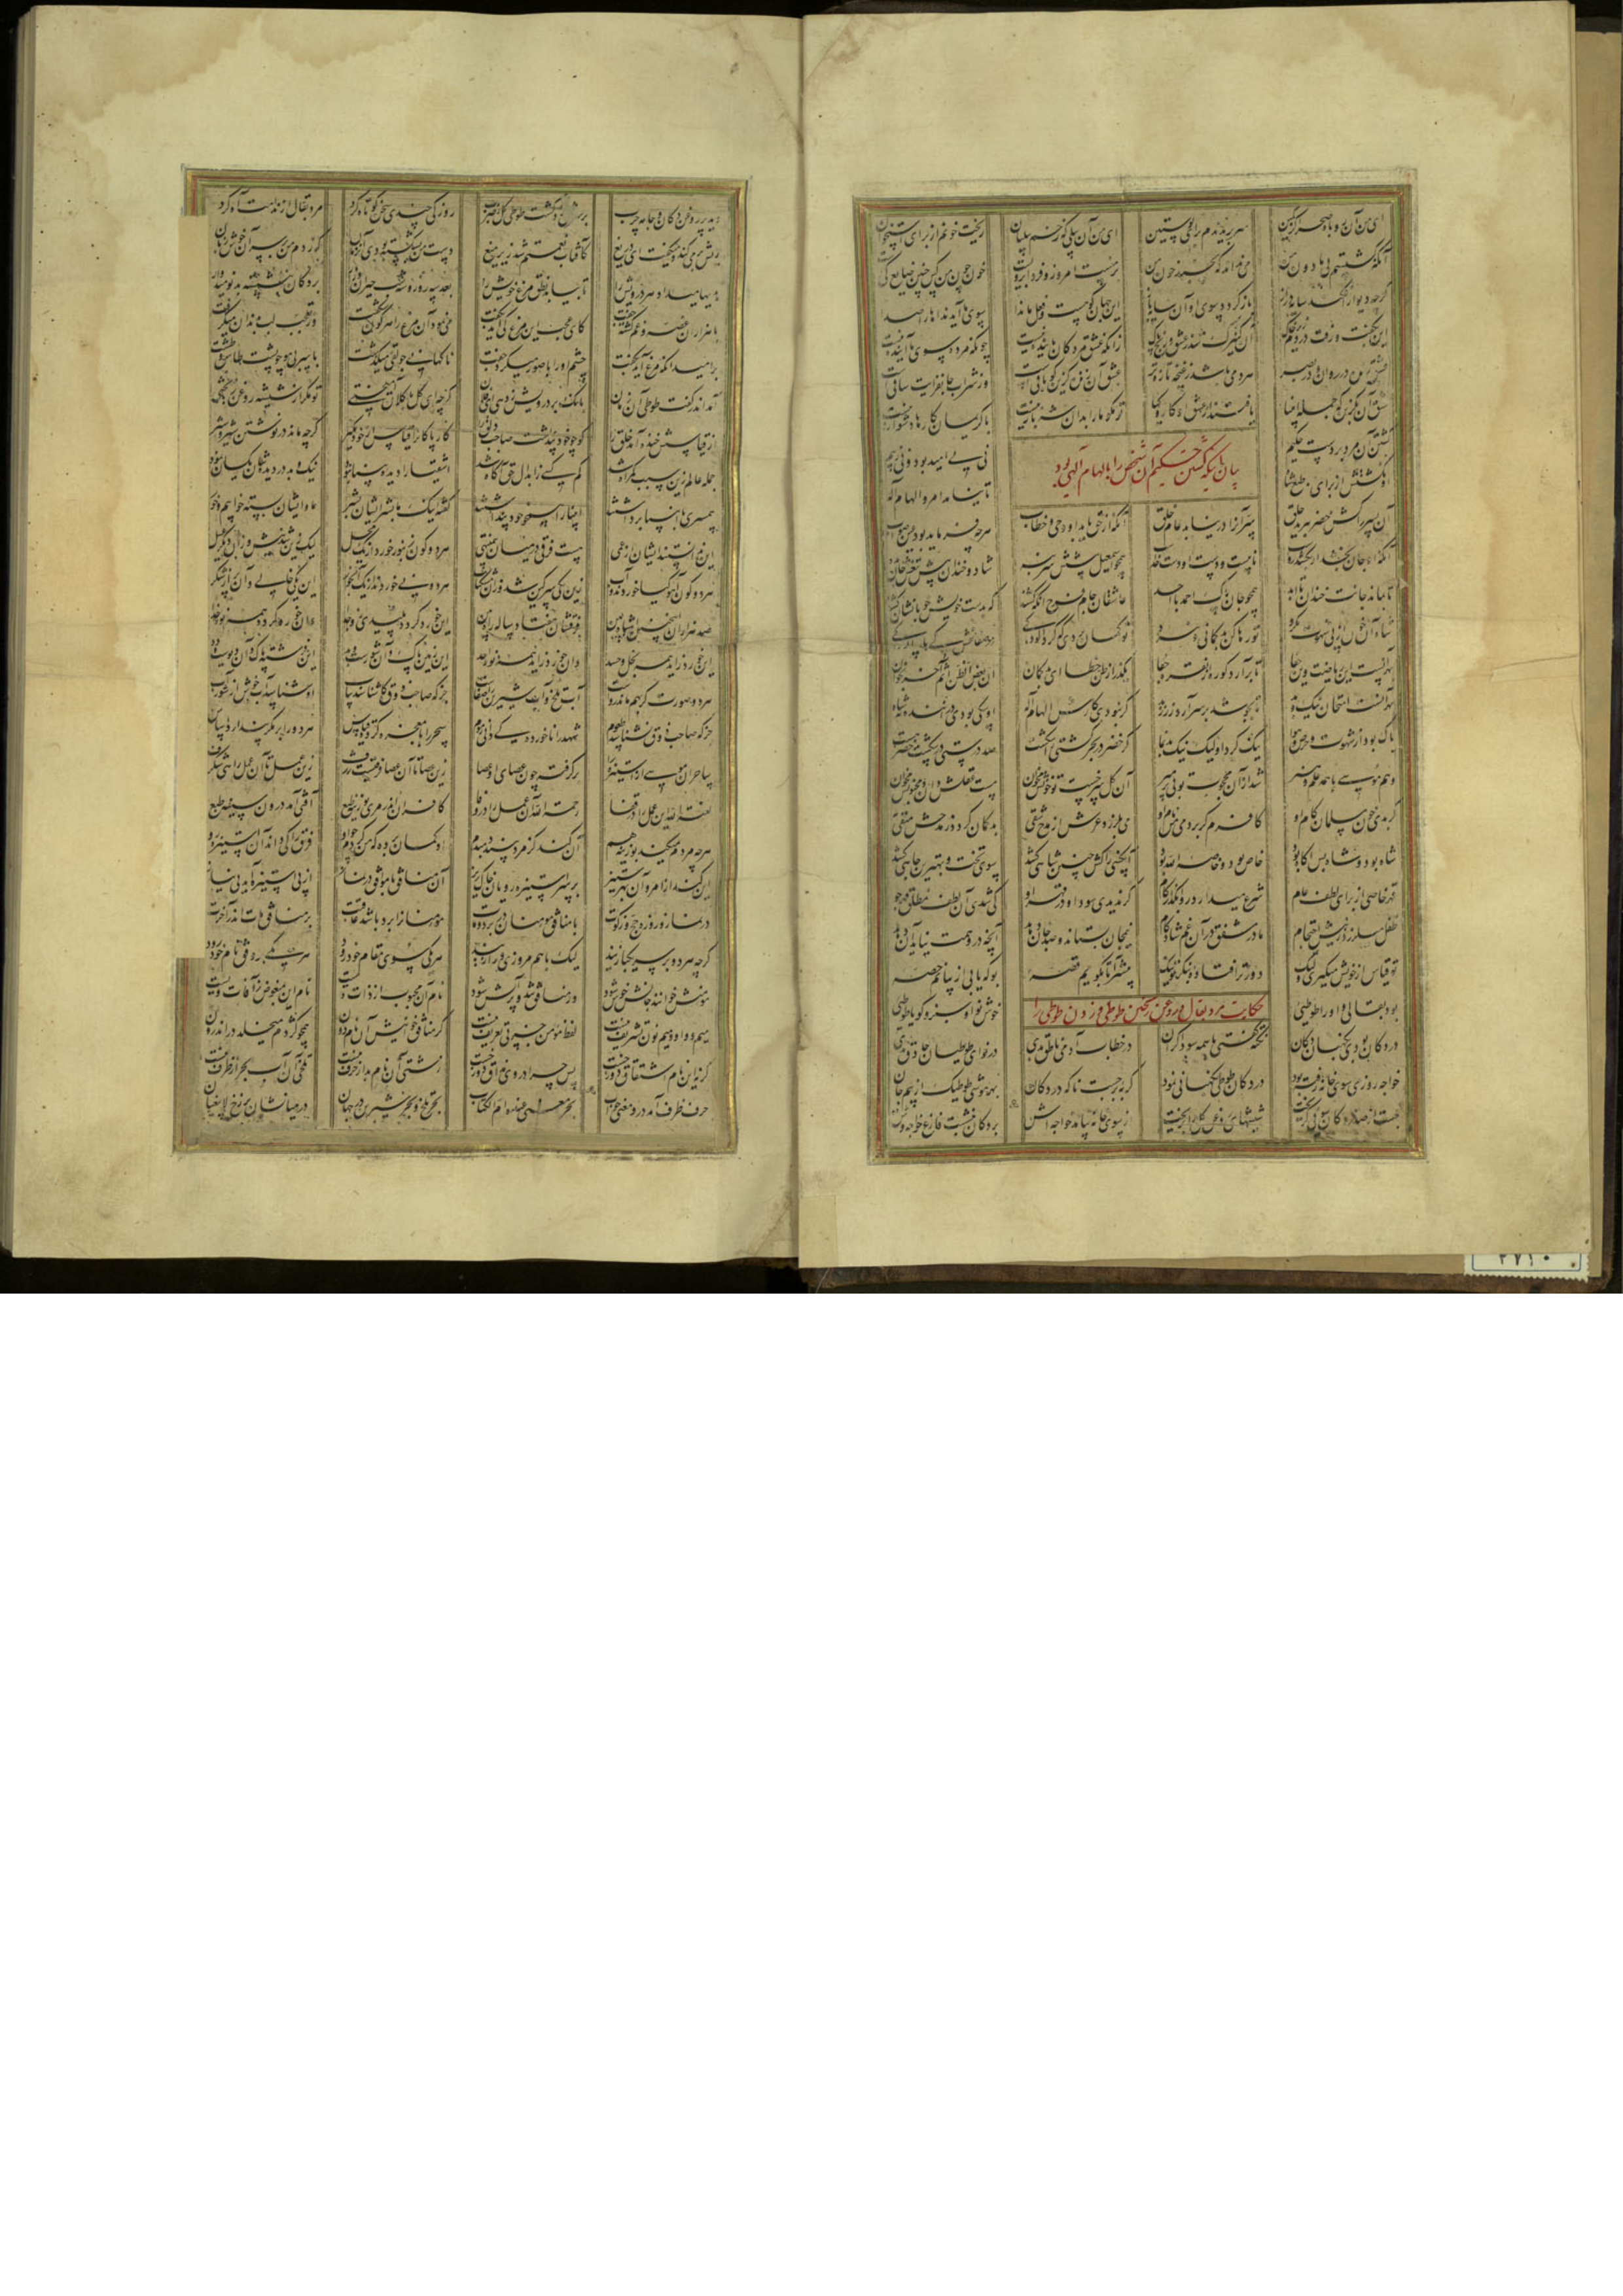 ای من آن روباه صحرا کز کمین سر بریدندم برای پوستین ای من آن پیلی که زخم پیلبان ریخت خونم از برای استخوان
آنکه کشتستم پی مادون من می نداند که نخسبد خون من بر منست امروز و فردا بر ویست خون چون من کس چنین ضایع کیست
گرچه دیوار افکند سایه دراز باز گردد سوی او آن سایه باز این جهان کوهست و فعل ما ندا سوی ما آید نداها را صدا
این بگفت و رفت در دم زیر خاک آن کنیزک شد ز عشق و رنج پاک زانکه عشق مردگان پاینده نیست چونکه مرده سوی ما آینده نیست
عشق زنده در روان و در بصر هر دمی باشد ز غنچه تازه تر عشق آن زنده گزین کو باقیست وز شراب جانفزایت ساقیست
عشق آن بگزین که جمله انبیا یافتند از عشق او کار و کیا تو مگو ما را بدان شه بار نیست با کریمان کارها دشوار نیست
کشتن آن مرد بر دست حکیم نی پی امید بود و نی ز بیم
بیان آنکه کشتن حکیم آن شخص را بالهام الهی بود
او نکشتش از برای طبع شاه تا نیامد امر و الهام اله
آن پسر را کش خضر ببرید حلق سر آنرا در نیابد عام خلق آنکه از حق یابد او وحی و خطاب هرچه فرماید بود عین صواب
آنکه او جان بخشد ار بکشد رواست نایبست و دست او دست خداست همچو اسمعیل پیشش سر بنه شاد و خندان پیش تیغش جان بده
تا بماند جانت خندان تا ابد همچو جان پاک احمد با احد عاشقان جام فرح آنگه کشند که بدست خویش خوبانشان کشند
شاه آن خون از پی شهوت نکرد تو رها کن بدگمانی و نبرد تو گمان بردی که کرد آلودگی در صفا غش کی هلد پالودگی
بهر آنست این ریاضت وین جفا تا بر آرد کوره از نقره جفا بگذر از ظن خطا ای بدگمان ان بعض الظن اثم آخر بخوان
بهر آنست امتحان نیک و بد تا بجوشد بر سر آرد زر زبد گر نبودی کارش الهام اله او سگی بودی دراننده نه شاه
پاک بود از شهوت و حرص و هوا نیک کرد او لیک نیک بد نما گر خضر در بحر کشتی را شکست صد درستی در شکست خضر هست
وهم موسی با همه علم و هنر شد از آن محجوب تو بی پر مپر آن گل سرخست تو خونش مخوان مست عقلست او تو مجنونش مخوان
گر بدی خون مسلمان کام او کافرم گر بردمی من نام او می بلرزد عرش از مدح شقی بدگمان گردد ز مدحش متقی
شاه بود و شاه بس آگاه بود خاص بود و خاصه الله بود آنکسی را کش چنین شاهی کشد سوی تخت و بهترین جاهی کشد
قهر خاصی از برای لطف عام شرع میدارد روا بگذار گام گر ندیدی سود او در قهر او کی شدی آن لطف مطلق قهرجو
طفل می لرزد ز نیش احتجام مادر مشفق در آن غم شادکام نیم جان بستاند و صد جان دهد آنچه در وهمت نیاید آن دهد
تو قیاس از خویش میگیری ولیک دور دور افتاده بنگر تو نیک پیشتر آ تا بگویم قصه بو که یابی از بیانم حصه
بود بقالی و او را طوطیی خوش نوا و سبز و گویا طوطیی
حکایت مرد بقال و روغن ریختن طوطی و زدن طوطی را
در دکان بودی نگهبان دکان نکته گفتی با همه سوداگران در خطاب آدمی ناطق بدی در نوای طوطیان حاذق بدی
خواجه روزی سوی خانه رفته بود در دکان طوطی نگهبانی نمود گربه برجست ناگه در دکان بهر موشی طوطیک از بیم جان
جست از صدر دکان سویی گریخت شیشهای روغن گل را بریخت از سوی خانه بیامد خواجه اش بر دکان بنشست فارغ خواجه وش
دید پر روغن دکان و جامه چرب بر سرش زد گشت طوطی کل ز ضرب روزکی چندی سخن کوتاه کرد مرد بقال از ندامت آه کرد
ریش بر می کند و میگفت ای دریغ کافتاب نعمتم شد زیر میغ دست من بشکسته بودی آن زمان که زدم من بر سر آن خوش زبان
هدیها میداد هر درویش را تا بیابد نطق مرغ خویش را بعد سه روز و سه شب حیران و زار بر دکان بنشسته بد نومیدوار
با هزاران غصه و غم گشته جفت کای عجب این مرغ کی آید بگفت می نمود آن مرغ را هر گون نهفت وز تعجب لب بدندان میگرفت
بر امید آنکه مرغ آید بگفت چشم او را با صور میکرد جفت ناگهانی جولقی میگذشت با سر بی مو چو پشت طاس و طشت
آمد اندر گفت طوطی آن زمان بانگ بر درویش زد هی ای فلان کز چه ای کل با کلان آمیختی تو مگر از شیشه روغن ریختی
از قیاسش خنده آمد خلق را کو چو خود پنداشت صاحب دلق را کار پاکانرا قیاس از خود مگیر گرچه ماند در نوشتن شیر و شیر
جمله عالم زین سبب گمراه شد کم کسی ز ابدال حق آگاه شد اشقیا را دیده بینا نبود نیک و بد در دیده شان یکسان نمود
همسری با انبیا برداشتند اولیا را همچو خود پنداشتند گفته اینک ما بشر ایشان بشر ما و ایشان بسته خوابیم و خور
این ندانستند ایشان از عمی هست فرقی در میان بی منتهی هر دو گون زنبور خوردند از یک محل لیک شد زین نیش و زان دیگر عسل
هر دو گون آهو گیا خوردند و آب زین یکی سرگین شد و زان مشک ناب هر دو نی خوردند از یک آبخور این یکی خالی و آن پر از شکر
صد هزاران همچنین اشباه بین فرقشان هفتاد ساله راه بین این خورد گردد پلیدی زو جدا وان خورد گردد همه نور خدا
این خورد زاید همه بخل و حسد وان خورد زاید همه نور احد این زمین پاک و آن شورست و بد این فرشته پاک و آن دیوست و دد
هر دو صورت گر بهم ماند رواست آب تلخ و آب شیرین را صفاست جز که صاحب ذوق کی شناسد بیاب او شناسد آب خوش از شوره آب
جز که صاحب ذوق نشناسد طعوم شهد را ناخورده کی دانی ز موم سحر را با معجزه کرده قیاس هر دو را بر مکر پندارد اساس
ساحران موسی از استیزه را برگرفته چون عصای او عصا زین عصا تا آن عصا فرقیست ژرف زین عمل تا آن عمل راهی شگرف
لعنة الله این عمل را در قفا رحمة الله آن عمل را در وفا کافران اندر مری بوزینه طبع آفتی آمد درون سینه طبع
هرچه مردم میکند بوزینه هم آن کند کز مرد بیند دم بدم او گمان برده که من کردم چو او فرق را کی داند آن استیزه رو
این کند از امر و آن بهر ستیز بر سر استیزه رویان خاک ریز آن منافق با موافق در نماز از پی استیزه آید نی نیاز
در نماز و روزه و حج و زکات با منافق مومنان در برد و مات مومنان را برد باشد عاقبت بر منافق مات اندر آخرت
گرچه هر دو بر سر یک بازیند لیک با هم مروزی و رازیند هر یکی سوی مقام خود رود هر یکی بر وفق نام خود رود
مومنش خوانند جانش خوش شود ور منافق شد پر آتش شود نام آن محبوب از ذات ویست نام این مبغوض ز آفات ویست
میم و واو و میم و نون تشریف نیست لفظ مومن جز پی تعریف نیست گر منافق خوانیش این نام دون همچو کژدم میخلد در اندرون
گرنه این نام اشتقاق دوزخست پس چرا در وی مذاق دوزخست زشتی آن نام بد از حرف نیست تلخی آن آب بحر از ظرف نیست
حرف ظرف آمد درو معنی چو آب بحر معنی عنده ام الکتاب بحر تلخ و بحر شیرین در جهان در میانشان برزخ لا یبغیان